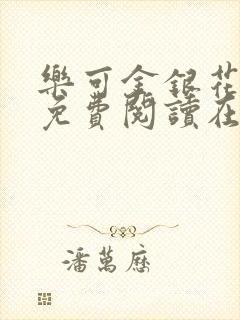 樂可金銀花
免費閱讀在
潘萬歷